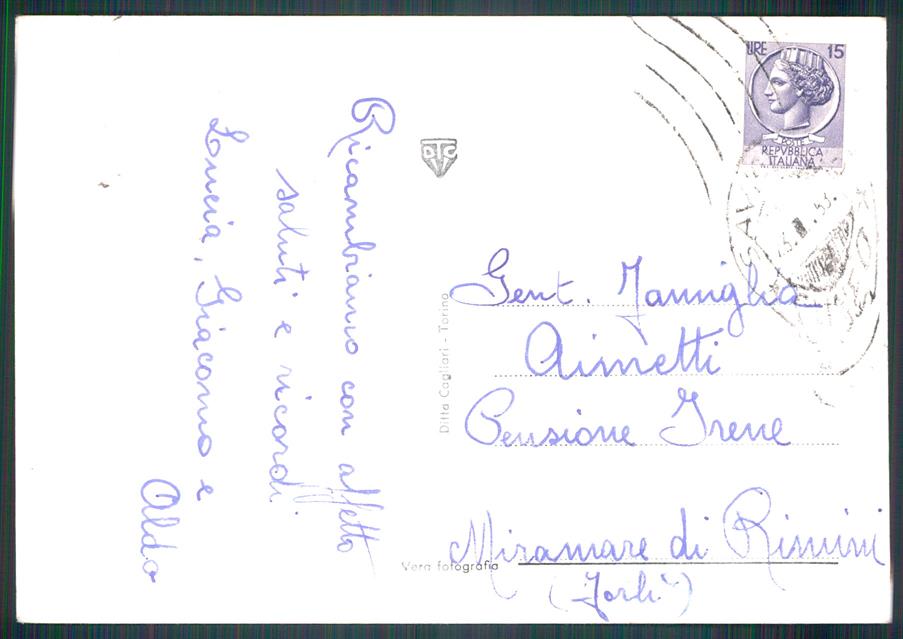 Ricambiamo con affetto
saluti e ricordi
Lucia, Giacomo e
Aldo
Ditta Cagliari - Torino
Vera fotografia
LIRE 15
POSTE
REPVBBLICA
ITALIANA
Gent. Famiglia
Aimetti
Pensione Irene
Miramare di Rimini
(Forlì)